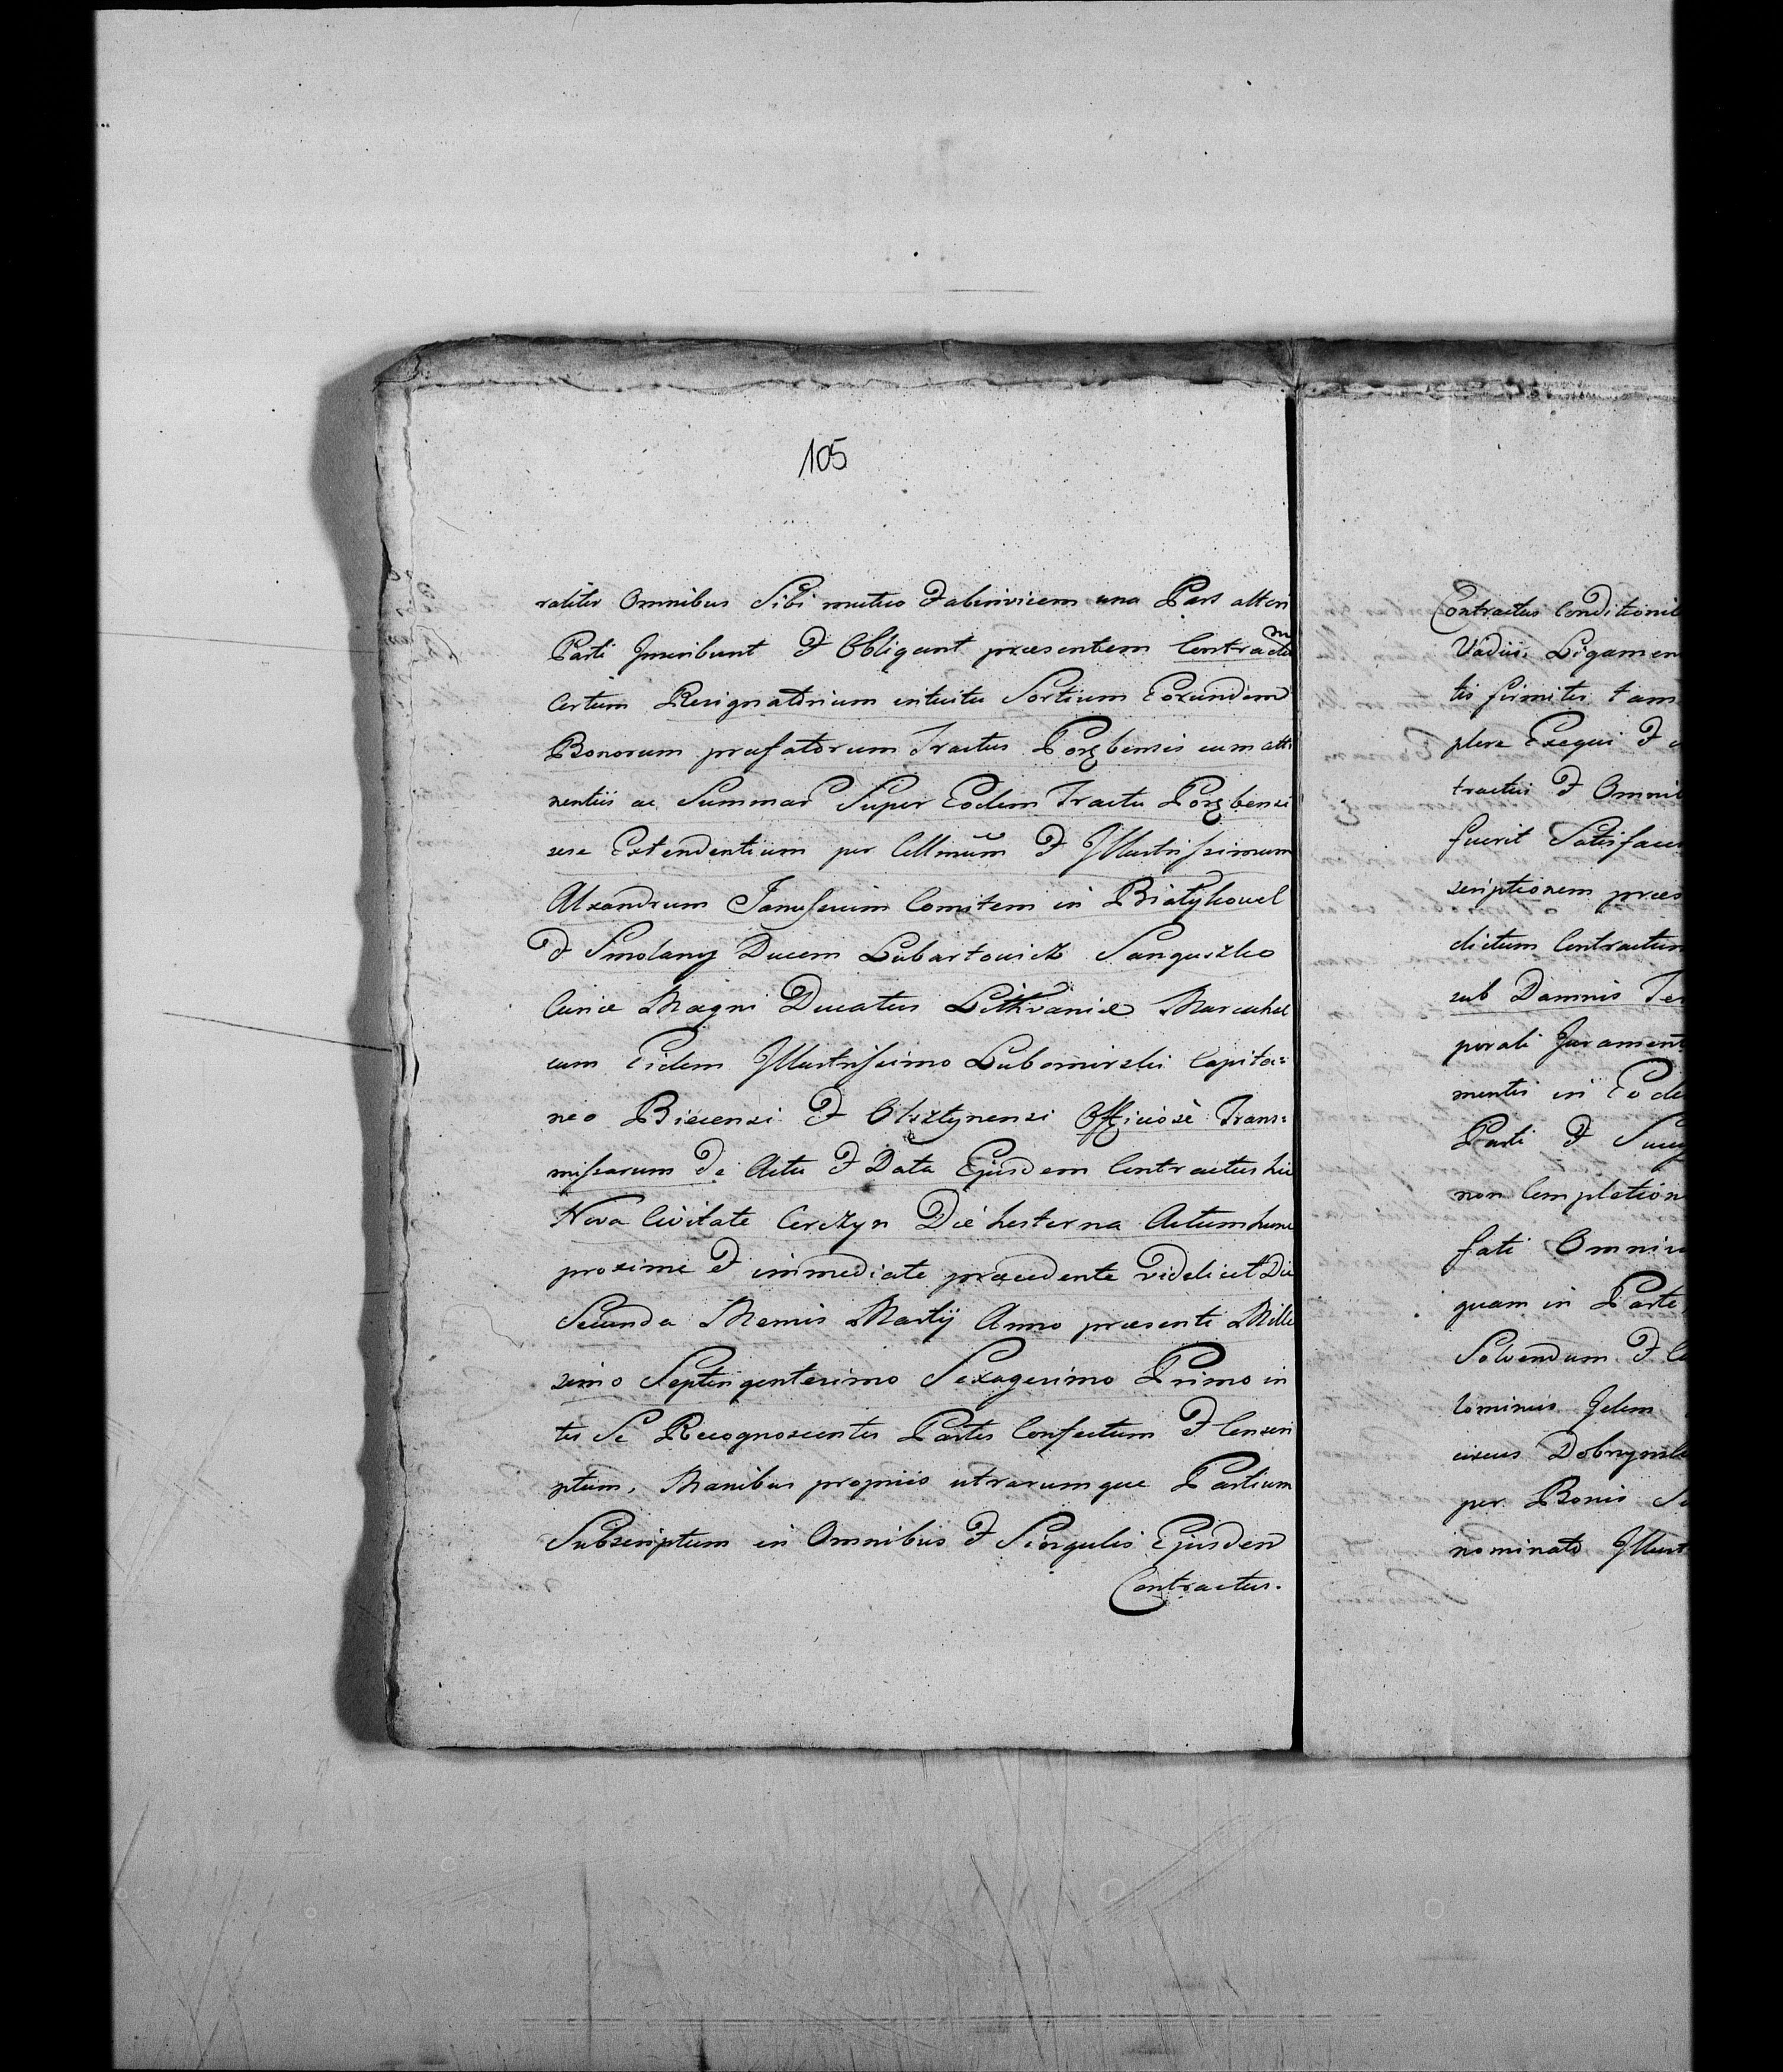 105
raliter Omnibus Sibi mutuo & abinvicem una Pars alteri
Parti Inscribunt & Obligant praesentem Contractum
Certum Resignatorium intuitu Sortium Eorundem
Bonorum praefatorum Tractus Porębensis cum atti
nentiis ac Summar Super Eodem Tractu Porębensi
sese Extendentium per Cellmum & Illustrissimum
Alxandrum Janussium Comitem in Białykowel
& Smolany Ducem Lubartowicz Sanguszko
Curiae Magni Ducatus Lithvaniae Marschal
cum Eidem Illustrissimo Lubomirski Capita=
neo Biecensi & Olsztynensi Officiosè Trans=
missarum De Actu & Data Ejusdem Contractus hic
Nova Civitate Corczyn Die hesterna Actum hunc
proxime & immediate praecedente videlicet Die
Secunda Mensis Martij Anno praesenti Mille
simo Septingentesimo Sexagesimo Primo in
ter Se Recognoscentes Partes Confectum & Conscri
ptum, Manibus propriis utrarumque Partium
Subscriptum in Omnibus & Singulis Ejusdem
Contractus.
Contractus Conditionib
Vadiis, Ligamen
tis firmiter tam
plere Exequi &
tractui & Omnib
fuerit Satisfac
scriptionem praes
dictum Contractum
sub Damnis Ter
porali Jurament
mentis in Eode
Parti & Succ
non Completion
fati Omni
quam in Parte
Solvendum &
lominus Idem
Dobrzyn
per Bonis
nominato Illust